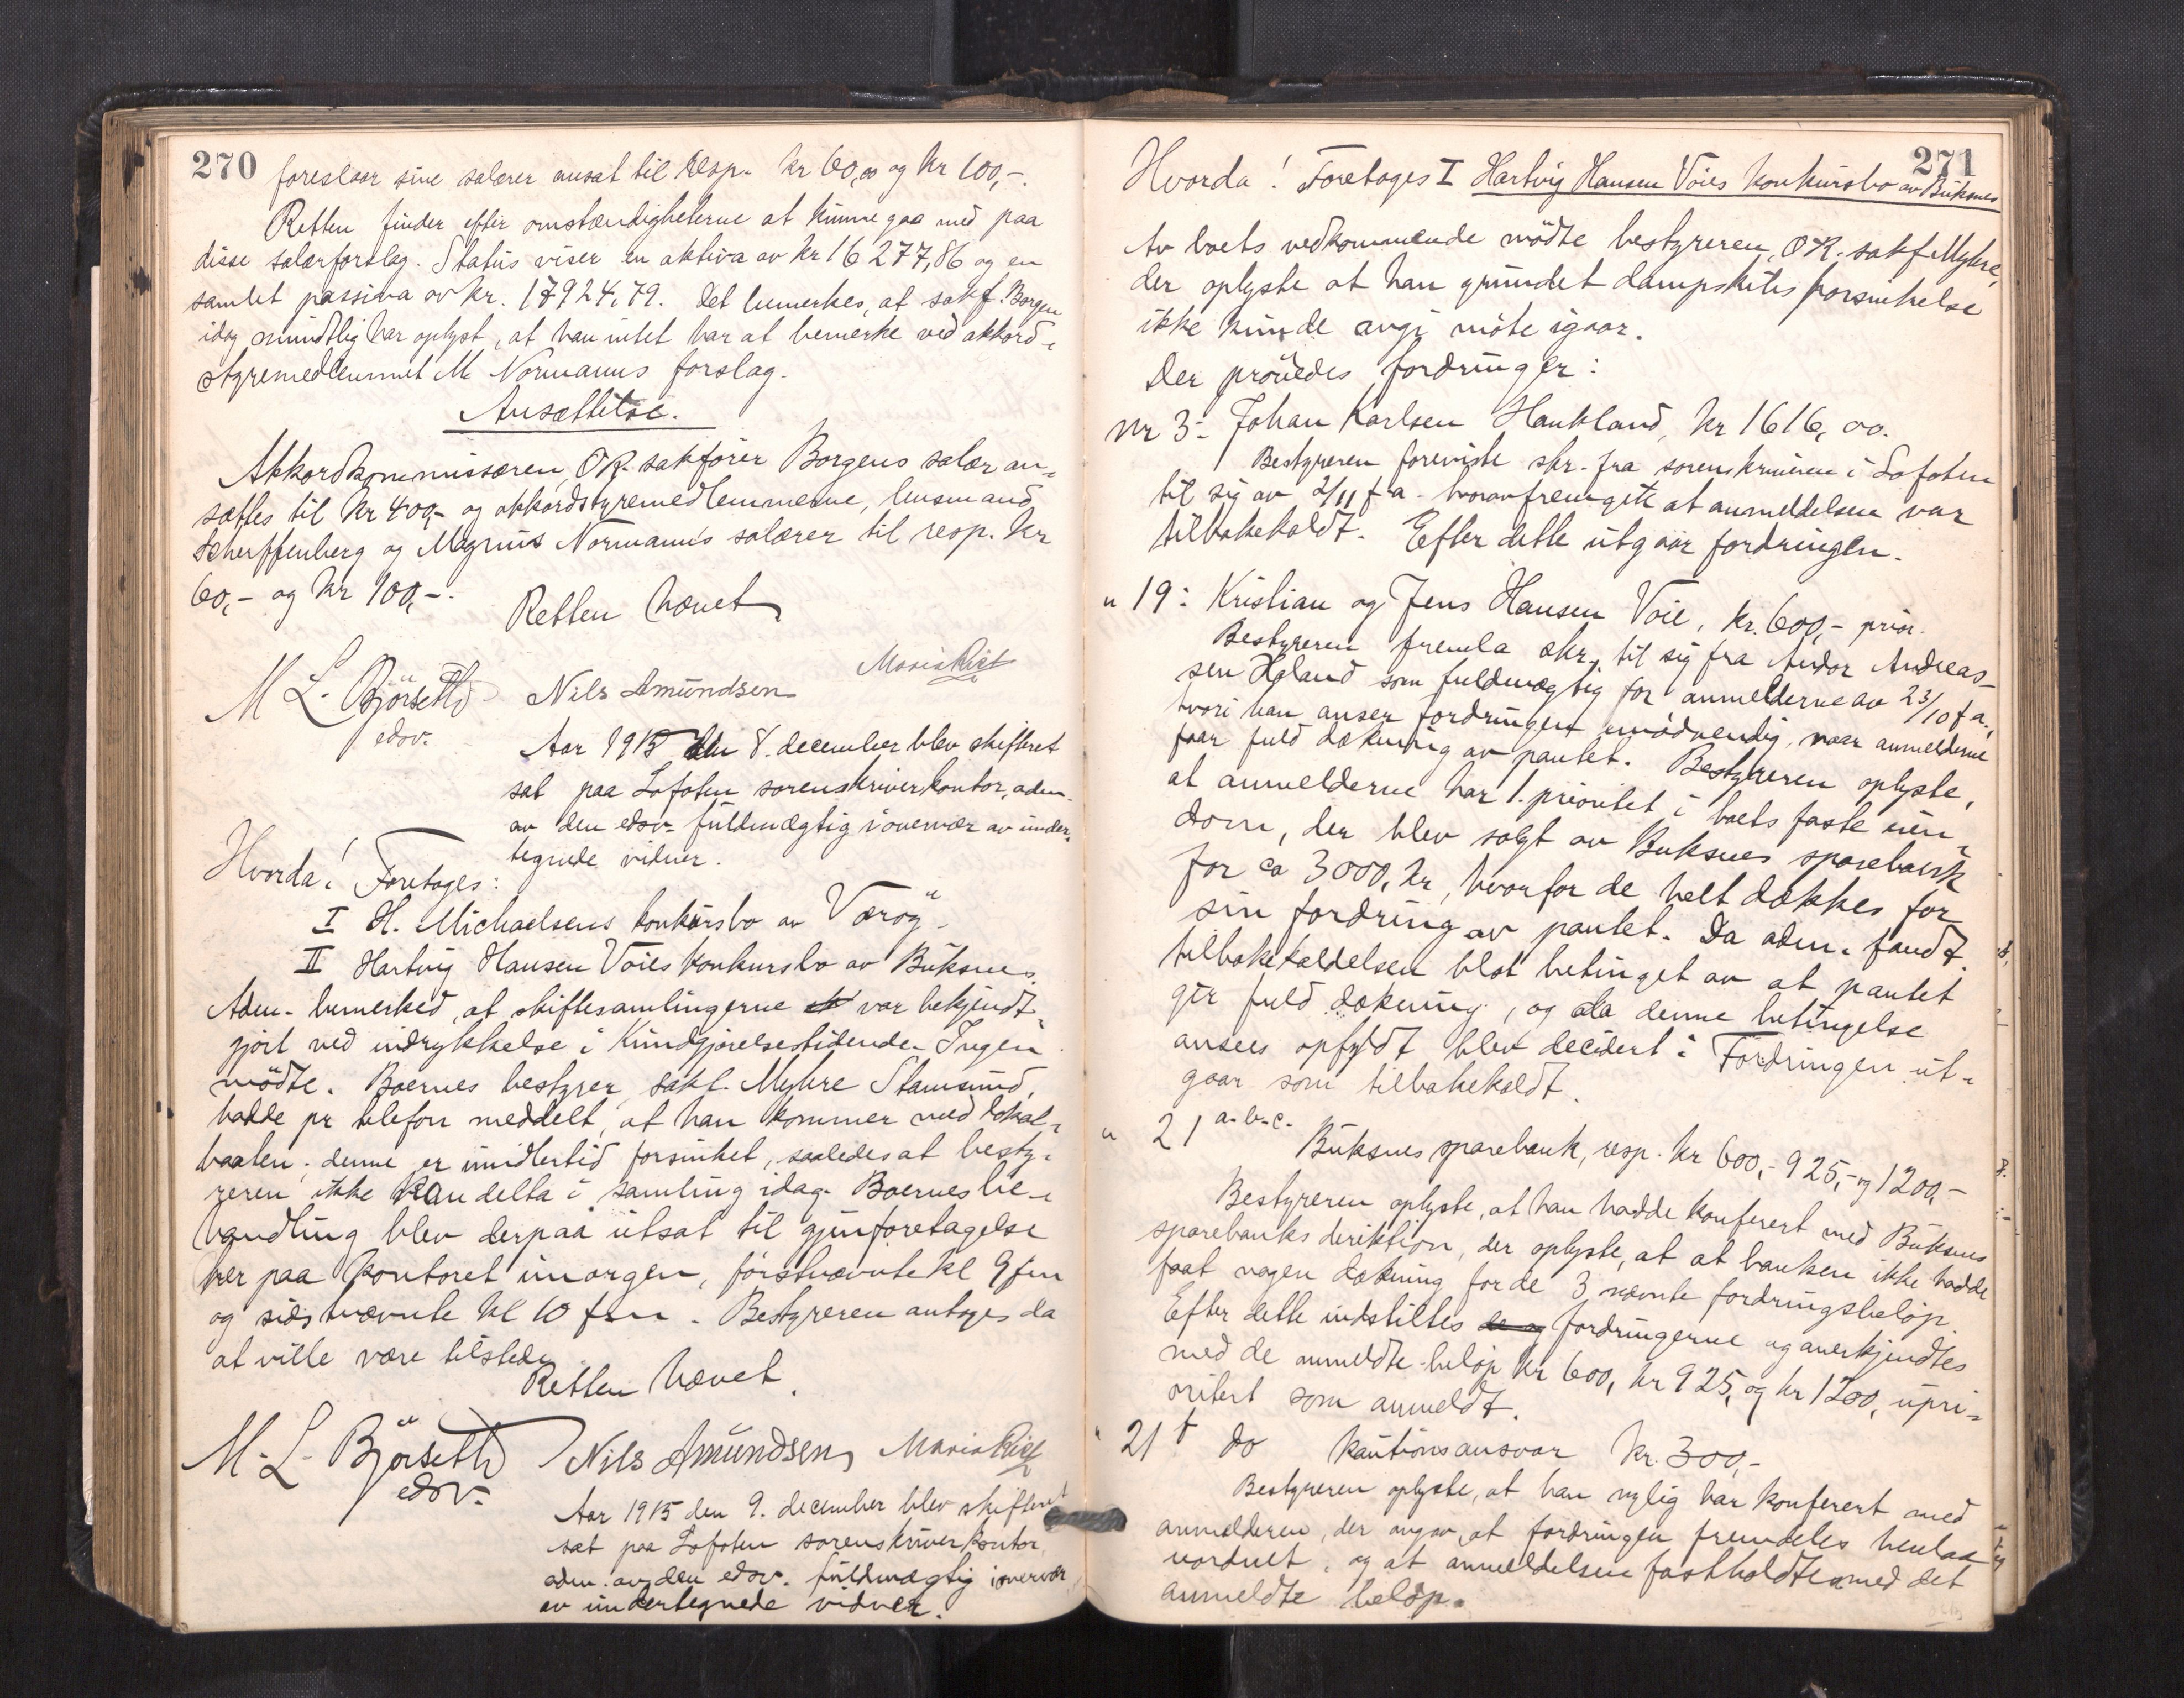 270
foreslaar sine salærer ansat til resp. kr 60,00 og kr 100,-.
Retten finder efter omstændigheterne at kunne gaa med paa
disse salærforslag. Status viser en aktiva av kr 16 277,86 og en
samlet passiva av kr. 17924,79. Det bemerkes, at sakf. Borgen
idag mundtlig har oplyst, at han intet har at bemerke ved akkord-
styremedlemmet M Normanns forslag.
Ansættelse.
Akkordkommissæren, OR. sakfører Borgens salær an-
sættes til kr 400,- og akkordstyremedlemmerne, lensmand
Scherffenberg og Magnus Normanns salærer til resp. kr
60,- og kr 100,-.
Retten hævet
M L. Björseth
edsv.
Nils Amundsen
Maria Rist
Aar 1915 den 8. december blev skifteret
sat paa Lofoten sorenskriverkontor, adm.
av den edsv. fuldmægtig i overvær av under-
tegnede vidner.
Hvorda! Foretages:
I H. Michaelsens konkursbo av Værøy
II Hartvig Hansen Voies konkursbo av Buksnes
Adm. bemerked, at skiftesamlingerne var bekjendt-
gjort ved indrykkelse i Kundgjørelsestidende. Ingen
mödte. Boernes bestyrer, sakf. Myhre Stamsund,
hadde pr telefon meddelt, at han kommer med lokal-
baaten; denne er imidlertid forsinket, saaledes at besty-
reren ikke kan delta i samling idag. Boernes be-
handling blev derpaa utsat til gjenforetagelse
her paa kontoret imorgen, förstnævnte kl 9 fm
og sidstnævnte kl 10 fm. Bestyreren antages da
at ville være tilstede.
Retten hævet.
M. L. Björseth
edsv.
Nils Amundsen
Maria Rist
Aar 1915 den 9. december blev skifteret
sat paa Lofoten sorenskriverkontor
adm. av den edsv. fuldmægtig i overvær
av undertegnede vidner.
271
Hvorda! Foretages I Hartvig Hansen Voies konkursbo av Buksnes
Av boets vedkommende mödte bestyreren, OR. sakf Myhre,
der oplyste at han grundet dampskibs forsinkelse
ikke kunde avgi möte igaar.
Der prövedes fordringer:
Nr 3: Johan Karlsen Haukland, kr 1616,00.
Bestyreren foreviste skr. fra sorenskriveren i Lofoten
til sig av 2/11 f a. hvorav fremgik at anmeldelsen var
tilbakekaldt. Efter dette utgaar fordringen.
" 19: Kristian og Jens Hansen Voie, kr. 600,- prior.
Bestyreren fremla skr. til sig fra Andor Andreas-
sen Høland som fuldmægtig for anmelderne av 23/10 f a.,
hvori han anser fordringen unødvendig, naar anmelderne
faar fuld dækning av pantet. Bestyreren oplyste,
at anmelderne har 1. prioritet i boets faste eien-
dom, der blev solgt av Buksnes sparebank
for ca 3000, kr, hvorfor de helt dækkes for
sin fordring av pantet. Da adm. fandt
tilbakekaldelsen blot betinget av at pantet
gir fuld dækning, og da denne betingelse
ansees opfyldt blev decidert: Fordringen ut-
gaar som tilbakekaldt.
" 21 a-b-c. Buksnes sparebank, resp. kr 600,- 925,- og 1200,-
Bestyreren oplyste, at han hadde konferert med Buksnes
sparebanks direktion, der oplyste, at at banken ikke hadde
faat nogen dækning for de 3 nævnte fordringsbeløp.
Efter dette indstilles fordringerne og anerkjendtes
med de anmeldte beløp kr 600, kr 925, og kr 1200, upri-
oritert som anmeldt.
" 21 f do kautionsansvar kr. 300,-
Bestyreren oplyste, at han nylig har konferert med
anmelderen, der angav, at fordringen fremdeles henlaa
uordnet, og at anmeldelsen fastholdtes med det
anmeldte beløp.